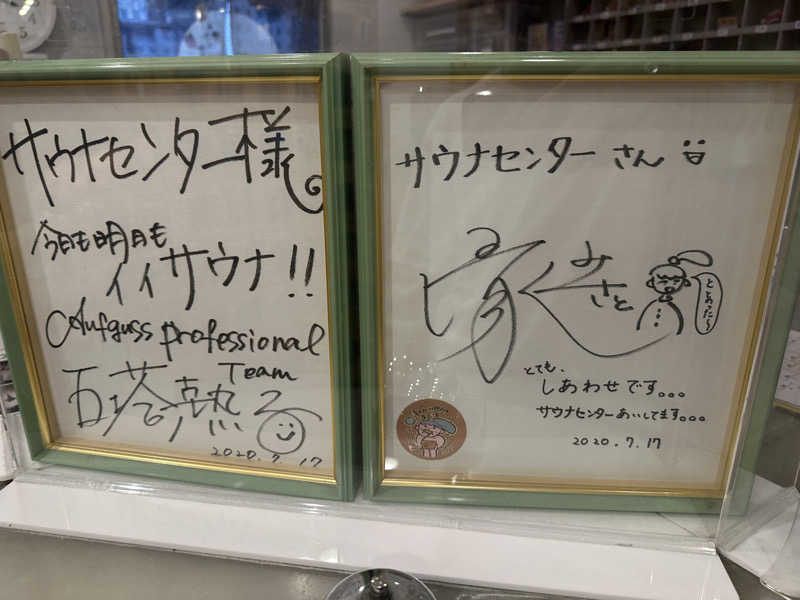 サウナセンター様
今日も明日も
イイサウナ!!
Aufguss professional
Team
2020.7.17
サウナセンターさん
みさと
ととのった〜
とても、
しあわせです。。。
サウナセンターあいしてます。。。
2020.7.17